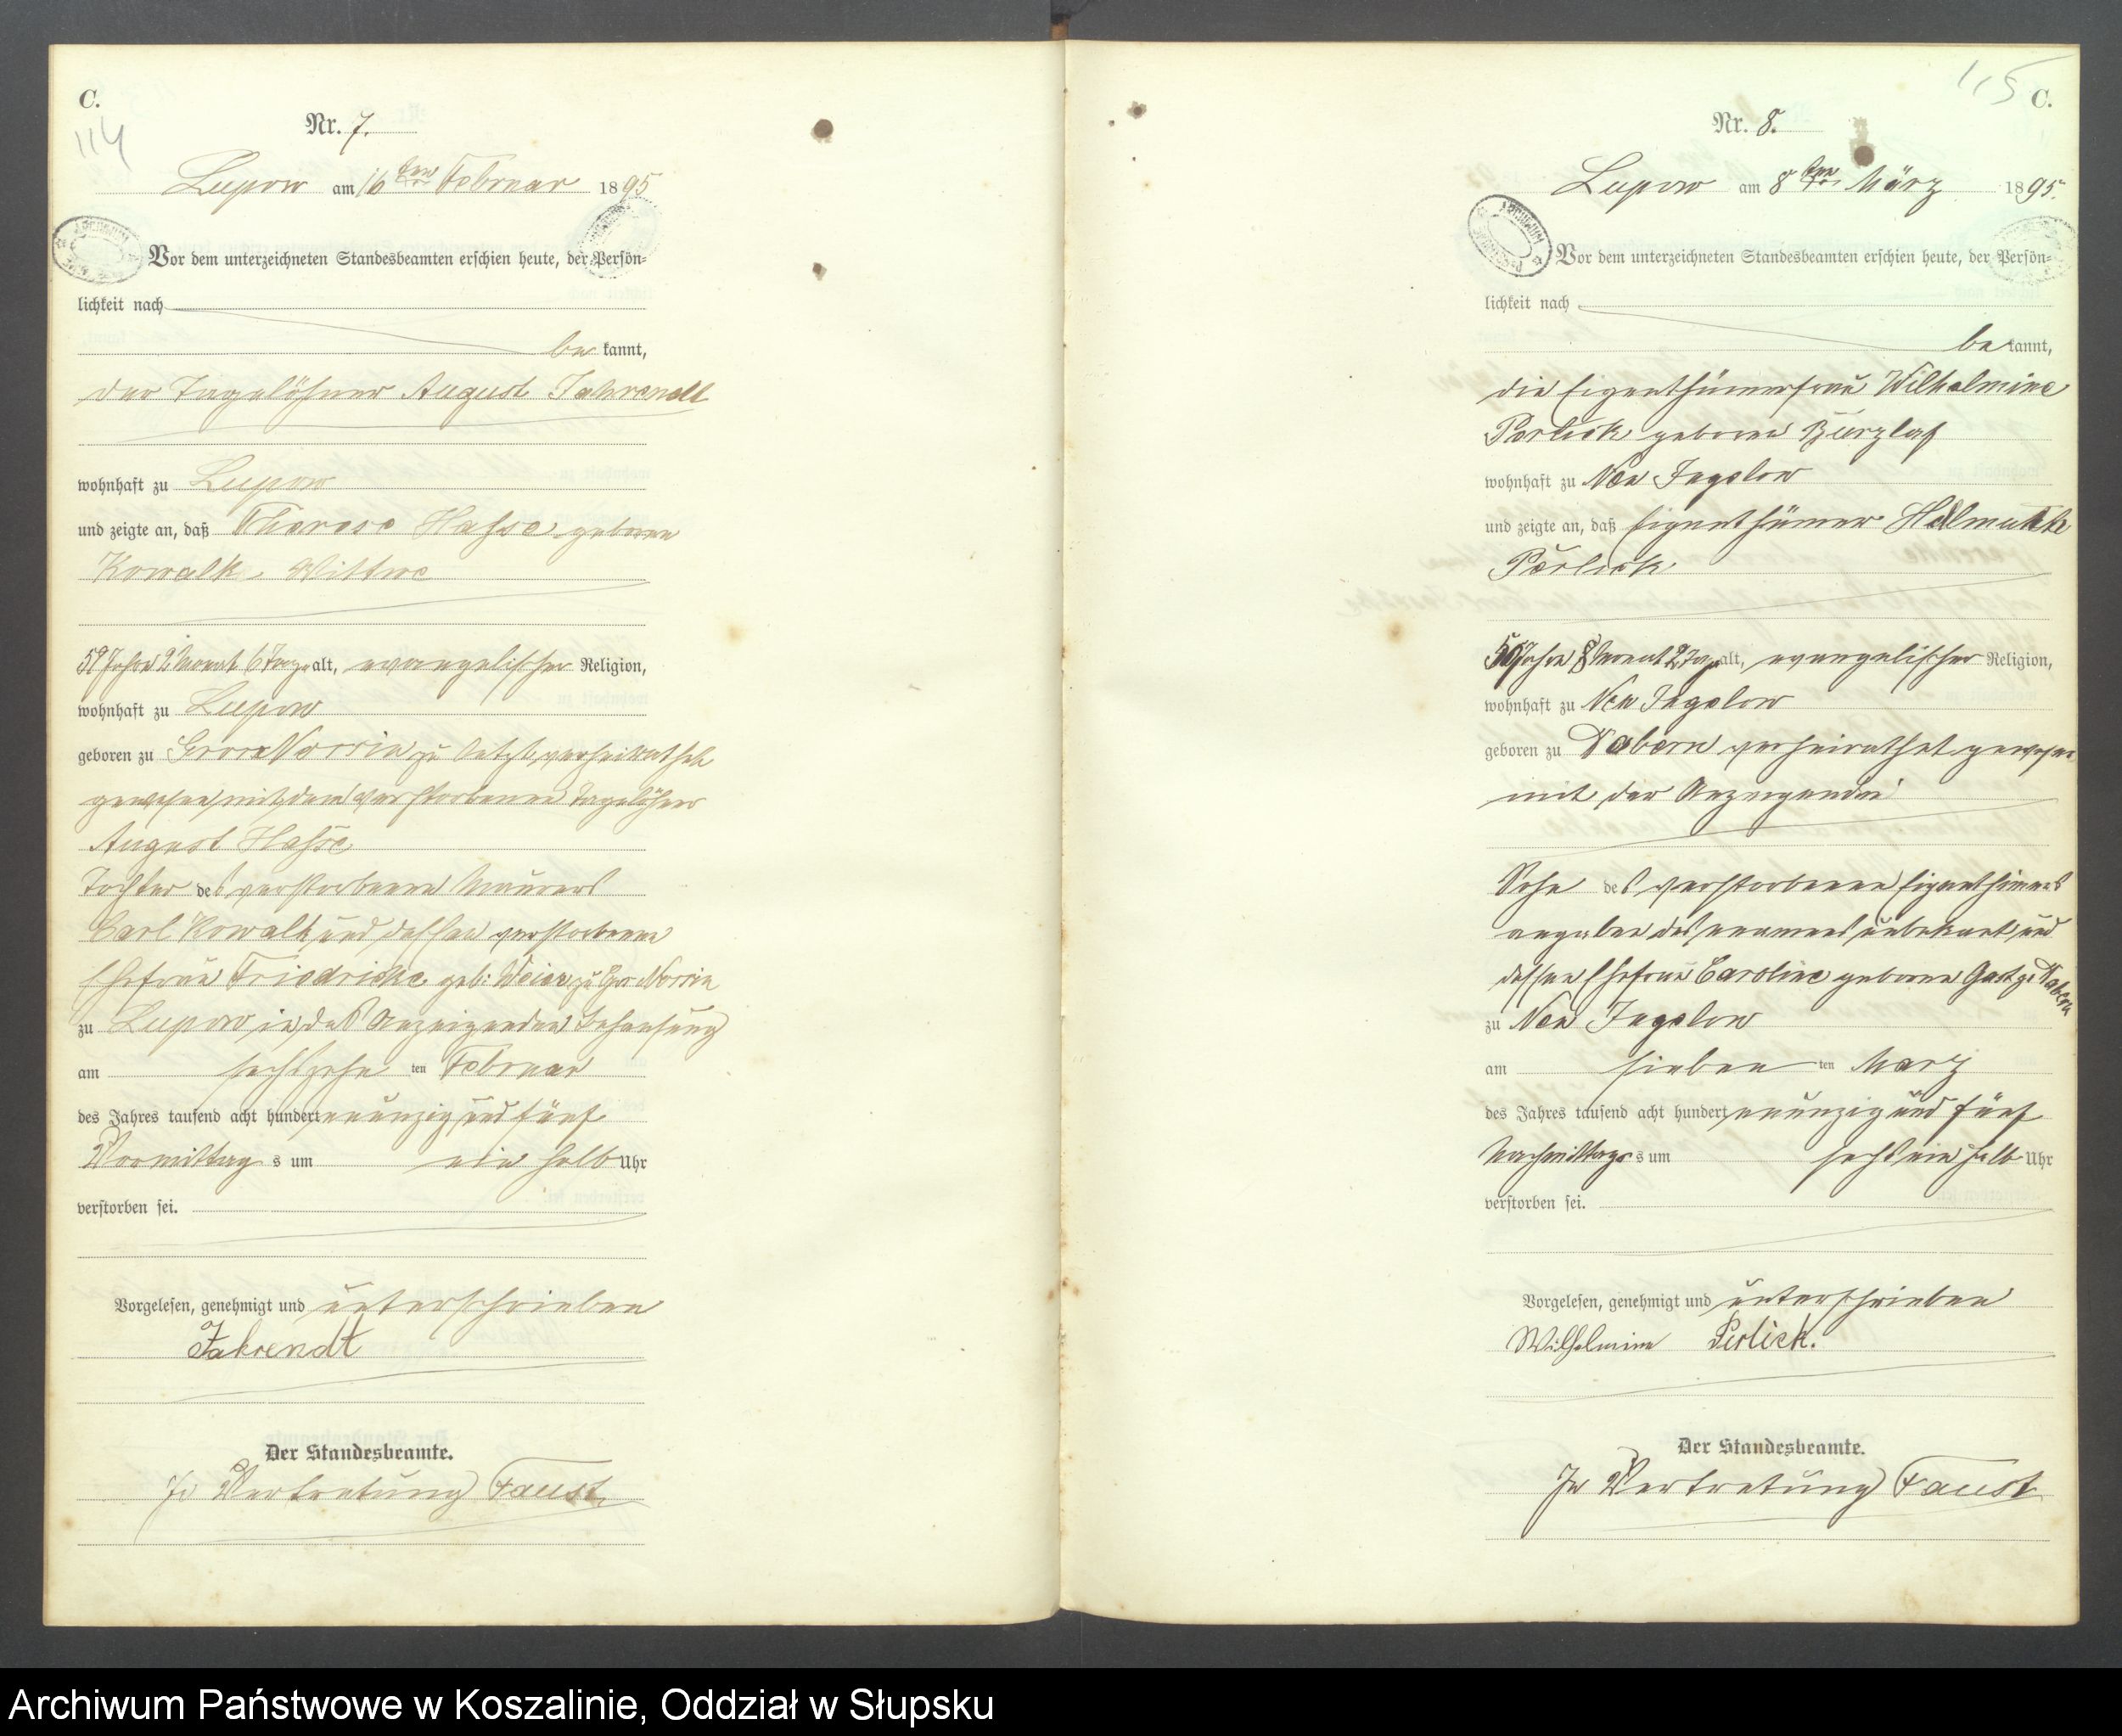 C.
114
Nr. 7.
Lupow am 16ten Februar 1895
Vor dem unterzeichneten Standesbeamten erschien heute, der Persön=
lichkeit nach
be kannt,
der Tagelöhner August Fahrendt
wohnhaft zu Lupow
und zeigte an, daß Therese Hasse geborne
Kowalk, Wittwe
59 Jahre 2 Monat 6 Tage alt, evangelischer Religion,
wohnhaft zu Lupow
geboren zu Gross Nossin zu letzt verheirathet
gewesen mit dem verstorbenen Tagelöhner
August Hasse
Tochter des verstorbenen Maurers
Carl Kowalk und dessen verstorbenen
Ehefrau Friedricke geb: Weier zu Gr. Nossin
zu Lupow in des Anzeigenden Behausung
am sechszehn ten Februar
des Jahres tausend acht hundert neunzig und fünf
Vormittag s um ein halb Uhr
verstorben sei.
Vorgelesen, genehmigt und unterschrieben
Fahrendt
Der Standesbeamte.
In Vertretung Faust
115 C.
Nr. 8.
Lupow am 8ten März 1895.
Vor dem unterzeichneten Standesbeamten erschien heute, der Persön=
lichkeit nach
be kannt,
die Eigenthümerfrau Wilhelmine
Perlick geborne Burzlaf
wohnhaft zu Neu Jugelow
und zeigte an, daß Eigenthümer Helmuth
Perlick
Jahre 8 Monat 2 Tage alt, evangelischer Religion,
wohnhaft zu Neu Jugelow
geboren zu Vabern verheirathet gewesen
mit der Anzeigendin
Sohn des verstorbenen Eigenthümers
angaben des unbekant und
dessen Ehefrau Caroline geborne Gast z. Vabern
zu Neu Jugelow
am sieben ten März
des Jahres tausend acht hundert neunzig und fünf
Nachmittags s um sechs ein halb Uhr
verstorben sei.
Vorgelesen, genehmigt und unterschrieben
Wilhelmine Perlick.
Der Standesbeamte.
In Vertretung Faust
Archiwum Państwowe w Koszalinie, Oddział w Słupsku